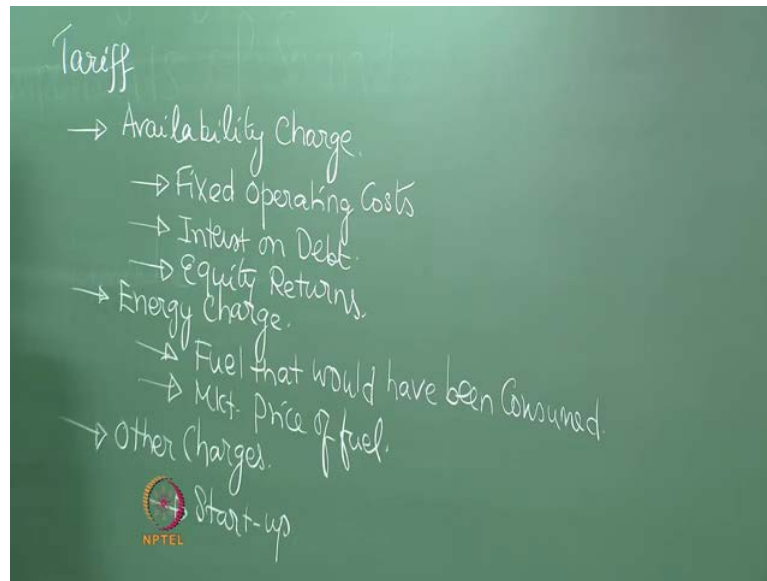 Tariff
→ Availability Charge.
→ Fixed Operating Costs
→ Interst on Debt.
→ Equity Returns.
→ Energy Charge.
→ Fuel that would have been Consumed.
→ Mkt. Price of fuel.
→ Other Charges.
→ Start-up
NPTEL